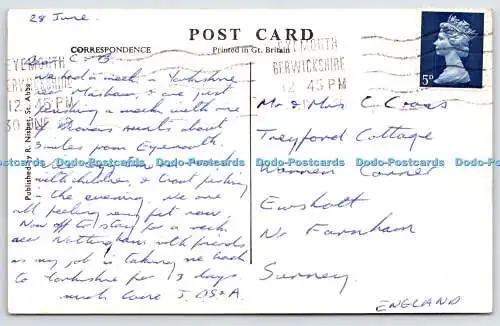 28 June.
POST CARD
CORRESPONDENCE
Printed in Gt. Britain
EYEMOUTH
BERWICKSHIRE
12 45 PM
30
EYEMOUTH
BERWICKSHIRE
12 45 PM
5D
Published by J. R. Nisbet, St. Abbs
Dear C & B
We had a week in Yorkshire
Masham, & are just
a week with one
of aunts about
3 miles from Eyemouth.
with children, & trout fishing
the evening. We are
all feeling very fit now.
Now off to stay for a week
near Nottingham with friends
as my job is taking me back
to Yorkshire for 3 days.
much love J. D S & A.
Mr & Mrs C. Cross
Treyford Cottage
Warren Corner
Ewshott
Nr Farnham
Surrey.
ENGLAND
Dodo-Postcards Dodo-Postcards Dodo-Postcards Dodo-Postcards Dodo-Postcards